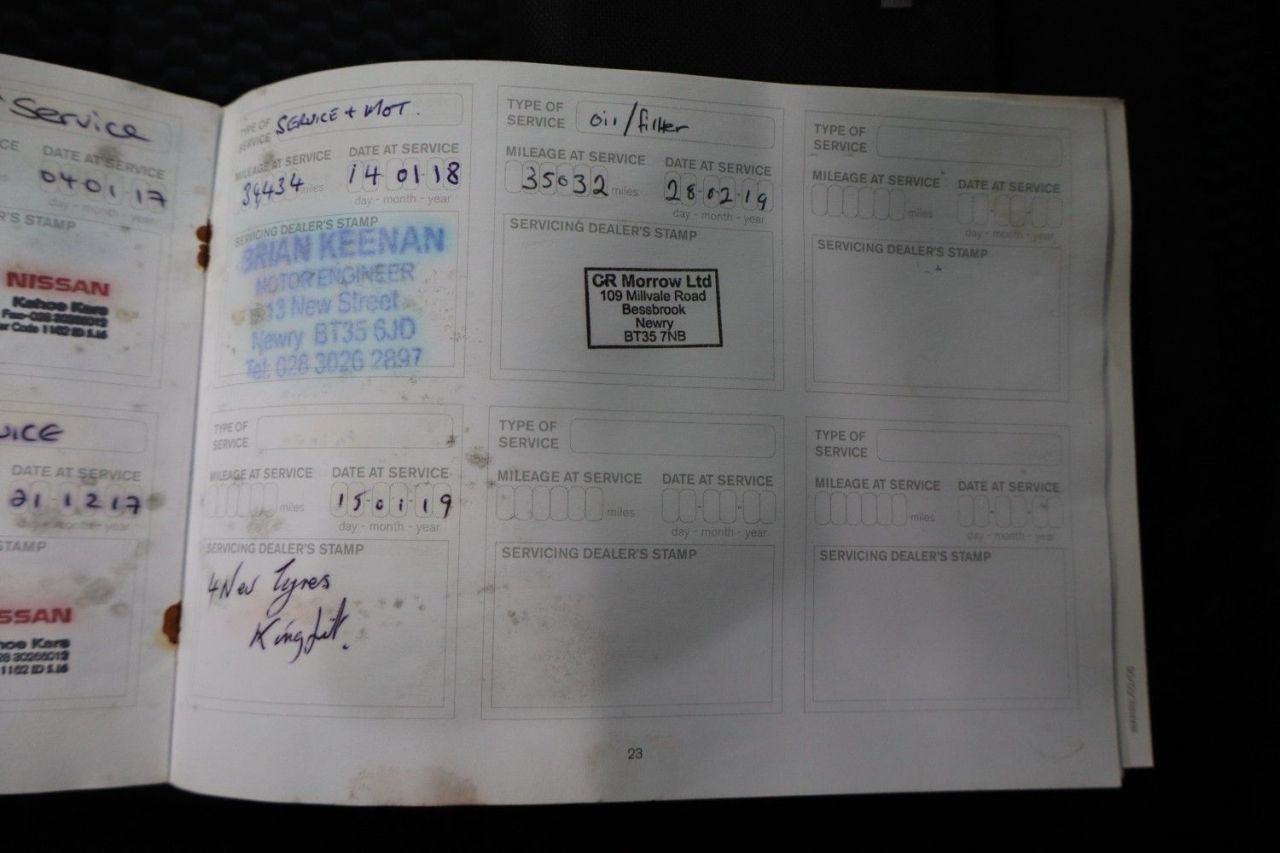 Service
DATE AT SERVICE
04 01 17
day - month - year
STAMP
NISSAN
Kehoe Kars
VICE
DATE AT SERVICE
21 12 17
day - month - year
STAMP
SSAN
hoe Kars
TYPE OF SERVICE
SERVICE + MOT.
MILEAGE AT SERVICE
34434 miles
DATE AT SERVICE
14 01 18
day - month - year
SERVICING DEALER'S STAMP
BRIAN KEENAN
MOTOR ENGINEER
13 New Street
Newry BT35 6JD
Tel: 028 3026 2897
TYPE OF
SERVICE
MILEAGE AT SERVICE
miles
DATE AT SERVICE
15 01 19
day - month - year
SERVICING DEALER'S STAMP
4 New Tyres
Kingfit.
TYPE OF
SERVICE
oil/filter
MILEAGE AT SERVICE
35032 miles
DATE AT SERVICE
28-02-19
day - month - year
SERVICING DEALER'S STAMP
CR Morrow Ltd
109 Millvale Road
Bessbrook
Newry
BT35 7NB
TYPE OF
SERVICE
MILEAGE AT SERVICE
miles
DATE AT SERVICE
day - month - year
SERVICING DEALER'S STAMP
TYPE OF
SERVICE
MILEAGE AT SERVICE
miles
DATE AT SERVICE
day - month - year
SERVICING DEALER'S STAMP
TYPE OF
SERVICE
MILEAGE AT SERVICE
miles
DATE AT SERVICE
day - month - year
SERVICING DEALER'S STAMP
23